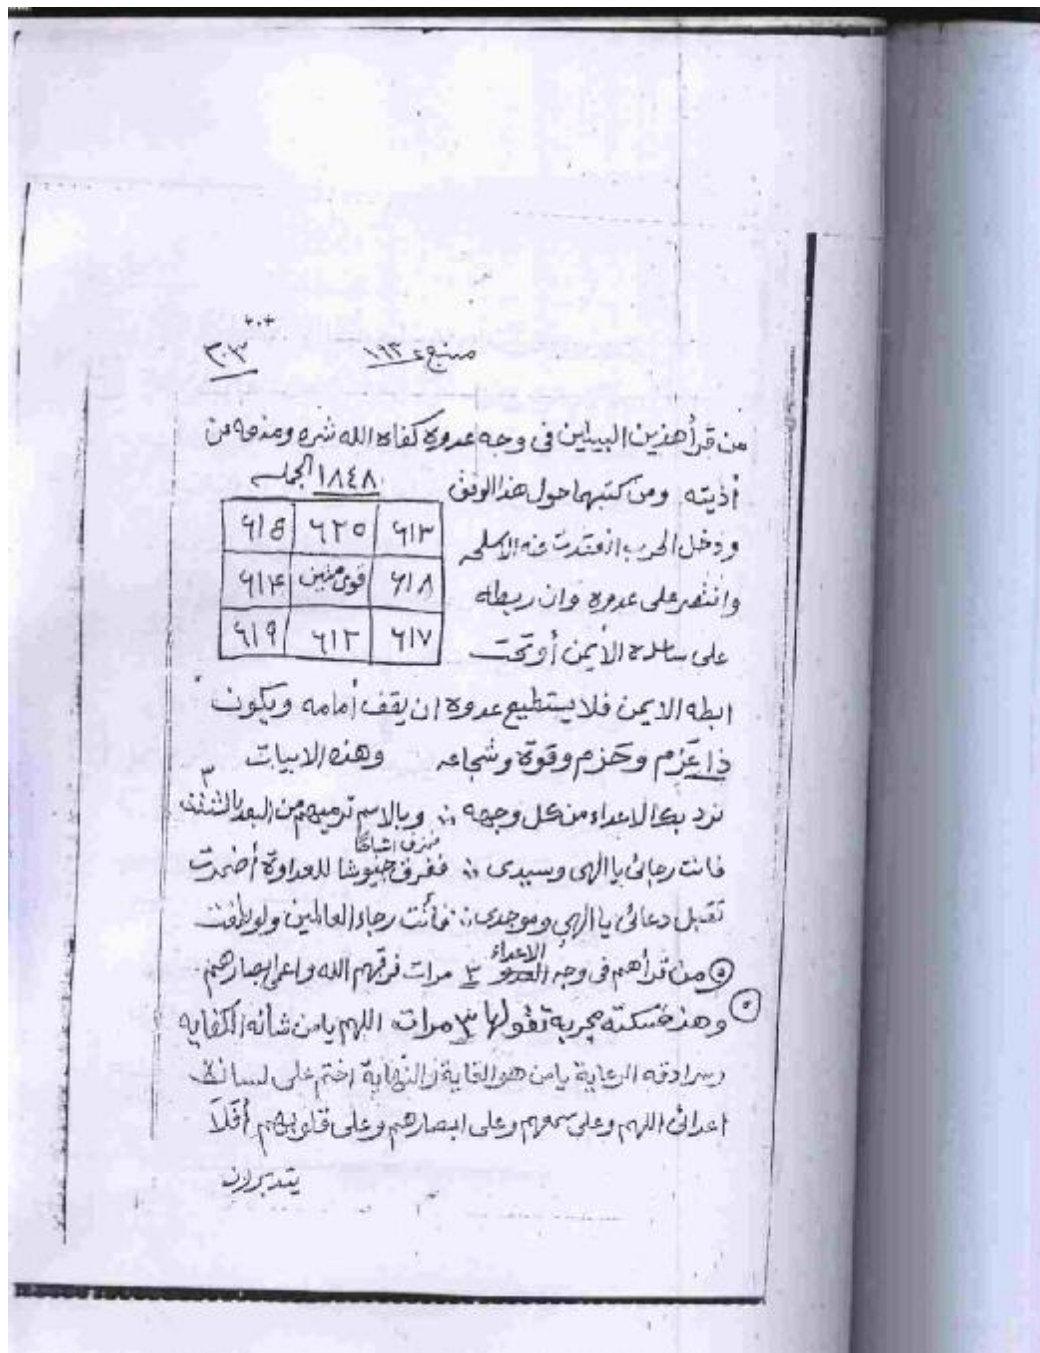 منبع ١٩٢ ٢٠٣
من قرأ هذين البيتين فى وجه عدوه كفاه الله شره ومنعه من
أذيته ومن كتبهما حول هذا الوفق ١٨٤٨ الجمله
ودخل الحرب انعقدت عنه الاسلحه
وانتصر على عدوه وان ربطه
على ساعده الأيمن أو تحت
٦١٣ ٦٢٥ ٦١٥
٦١٨ قوى متين ٦١٤
٦١٧ ٦١٢ ٦١٩
ابطه الايمن فلا يستطيع عدوه ان يقف أمامه ويكون
ذا عزم وحزم وقوة وشجاعه وهذه الابيات
نرد بك الاعداء من كل وجهه ؛ وبالاسم ترميهم من البعد بالشتت ٣
فانت رجائى يا الهى وسيدى ؛ ففرق جيوشا للعداوة أضمرت
تقبل دعائى يا الهى وموجدى ؛ فأنت رجاء العالمين ولو طغت
٥ من قرأهم فى وجه العدو الاعداء ٣ مرات فرقهم الله واعمى ابصارهم
٥ وهذه سكته مجربة تقولها ٣ مرات اللهم يا من شأنه الكفايه
وسرادقه الرعاية يا من هو الغاية والنهاية اختم على لسان
اعدائى اللهم وعلى سمعهم وعلى ابصارهم وعلى قلوبهم أفلا
يتدبرون